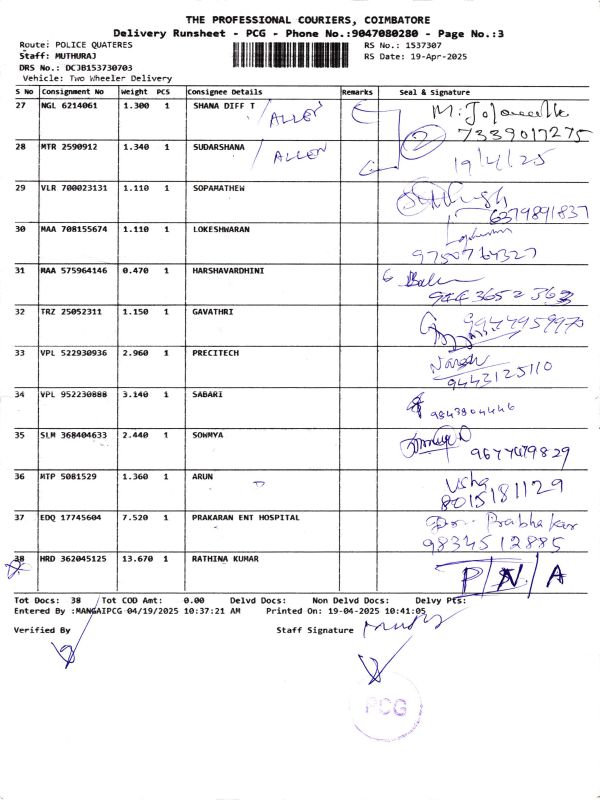 THE PROFESSIONAL COURIERS, COIMBATORE
Delivery Runsheet - PCG - Phone No.:9047080280 - Page No.:3
Route: POLICE QUATERES
RS No.: 1537307
Staff: MUTHURAJ
RS Date: 19-Apr-2025
DRS No.: DCJB153730703
Vehicle: Two Wheeler Delivery
S No Consignment No Weight PCS Consignee Details Remarks Seal & Signature
27 NGL 6214061 1.300 1 SHANA DIFF T / ALLEN
7339017275
28 MTR 2590912 1.340 1 SUDARSHANA / ALLEN 2 19/4/25
29 VLR 700023131 1.110 1 SOPAMATHEW
6379891837
30 MAA 708155674 1.110 1 LOKESHWARAN
9750764327
31 MAA 575964146 0.470 1 HARSHAVARDHINI
944 3652 363
32 TRZ 25052311 1.150 1 GAVATHRI 9944959970
33 VPL 522930936 2.960 1 PRECITECH Naresh
9443125110
34 VPL 952230888 3.140 1 SABARI 9843904446
35 SLM 368404633 2.440 1 SOWMYA
9677479829
36 MTP 5081529 1.360 1 ARUN Usha
8015181129
37 EDQ 17745604 7.520 1 PRAKARAN ENT HOSPITAL Dr. Prabhakar
9834512885
38 HRD 362045125 13.670 1 RATHINA KUMAR P/N/A
Tot Docs: 38 Tot COD Amt: 0.00 Delvd Docs: Non Delvd Docs: Delvy Pts:
Entered By :MANGAIPCG 04/19/2025 10:37:21 AM Printed On: 19-04-2025 10:41:05
Verified By Staff Signature
PCG